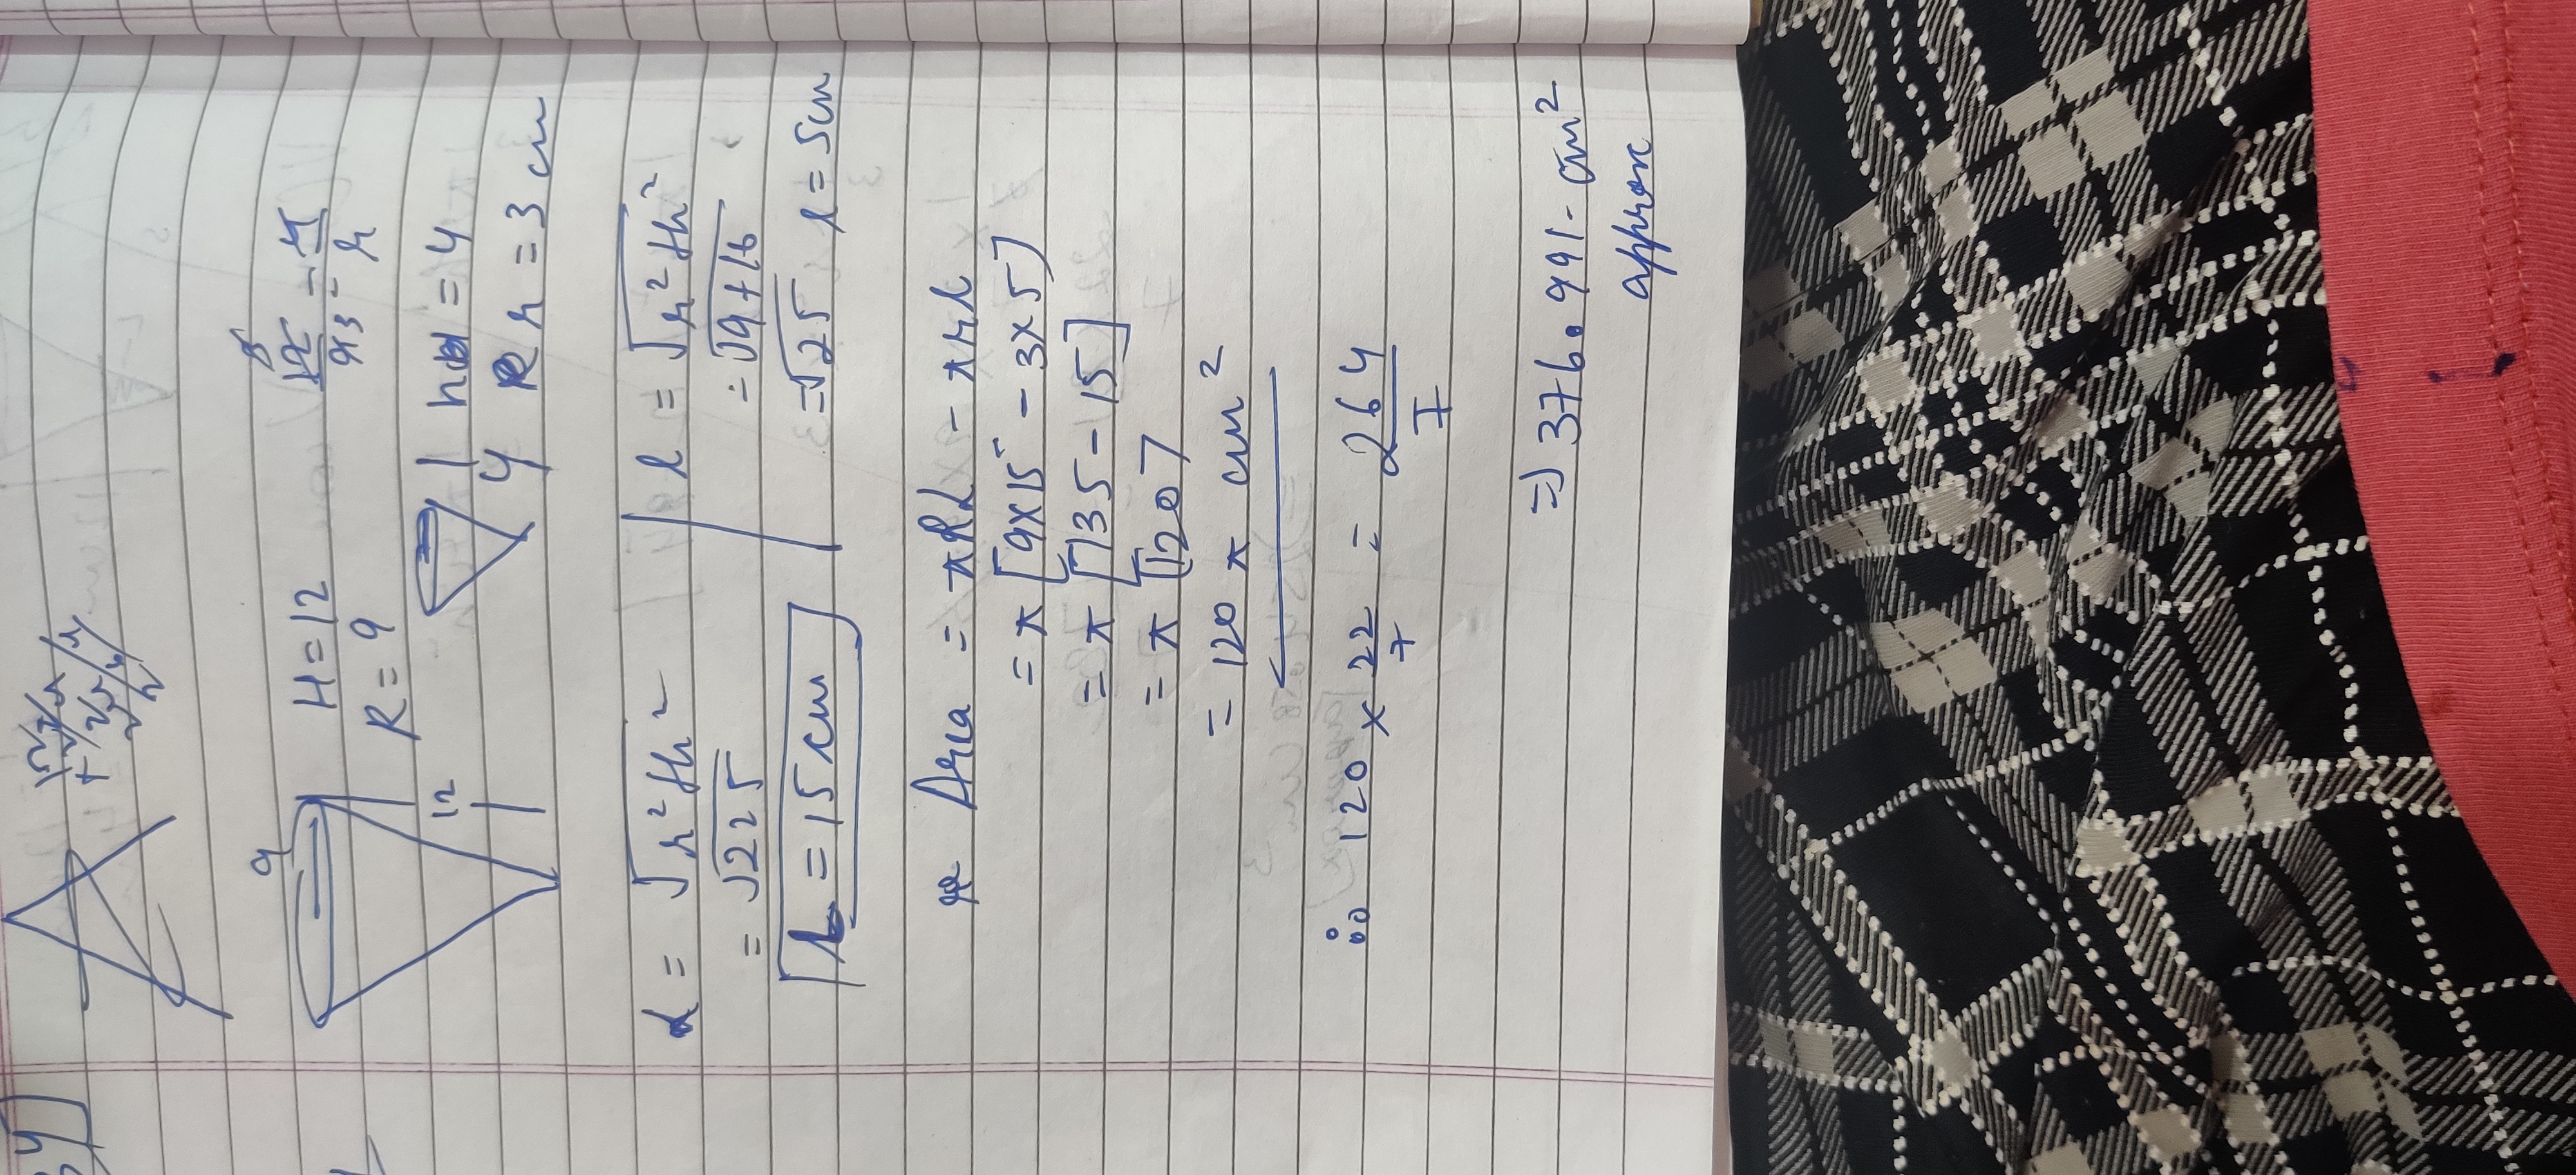 9
H = 12
R = 9
12
12/9 3 = 4/r
h = 4
r = 3 cm
4
L = √r²+h²
= √225
L = 15 cm
l = √r²+h²
= √9+16
= √25 l = 5cm
Area = πRL - πrl
= π [9×15 - 3×5]
= π [135 - 15]
= π [120]
= 120 π cm²
∴ 120 × 22/7 = 264/7
=) 376.991 cm²
approx